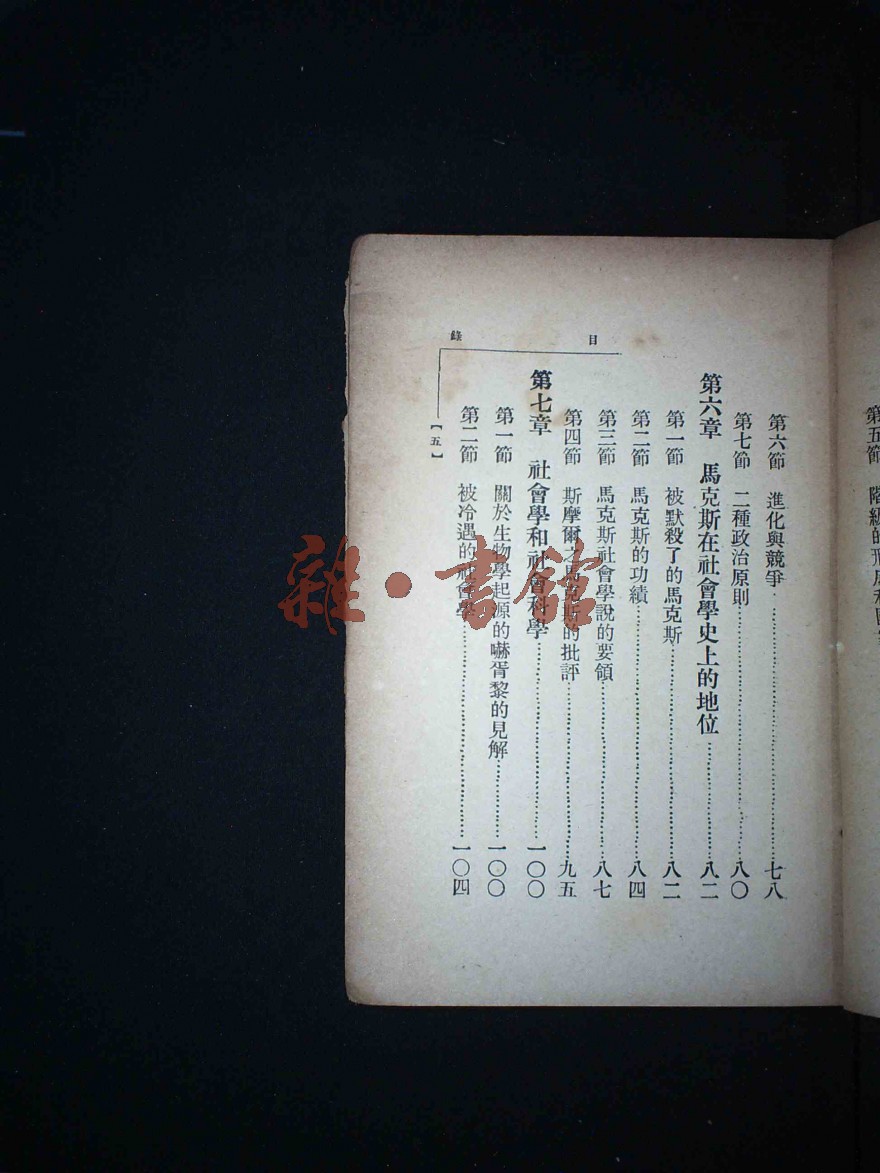 第五節 階級的
目錄
第六節 進化與競爭……七八
第七節 二種政治原則……八〇
第六章 馬克斯在社會學史上的地位……八二
第一節 被默殺了的馬克斯……八二
第二節 馬克斯的功績……八四
第三節 馬克斯社會學說的要領……八七
第四節 斯摩爾之馬克斯的批評……九五
第七章 社會學和社會科學……一〇〇
第一節 關於生物學起源的嚇胥黎的見解……一〇〇
第二節 被冷遇的社會學……一〇四
【五】
雜·書館